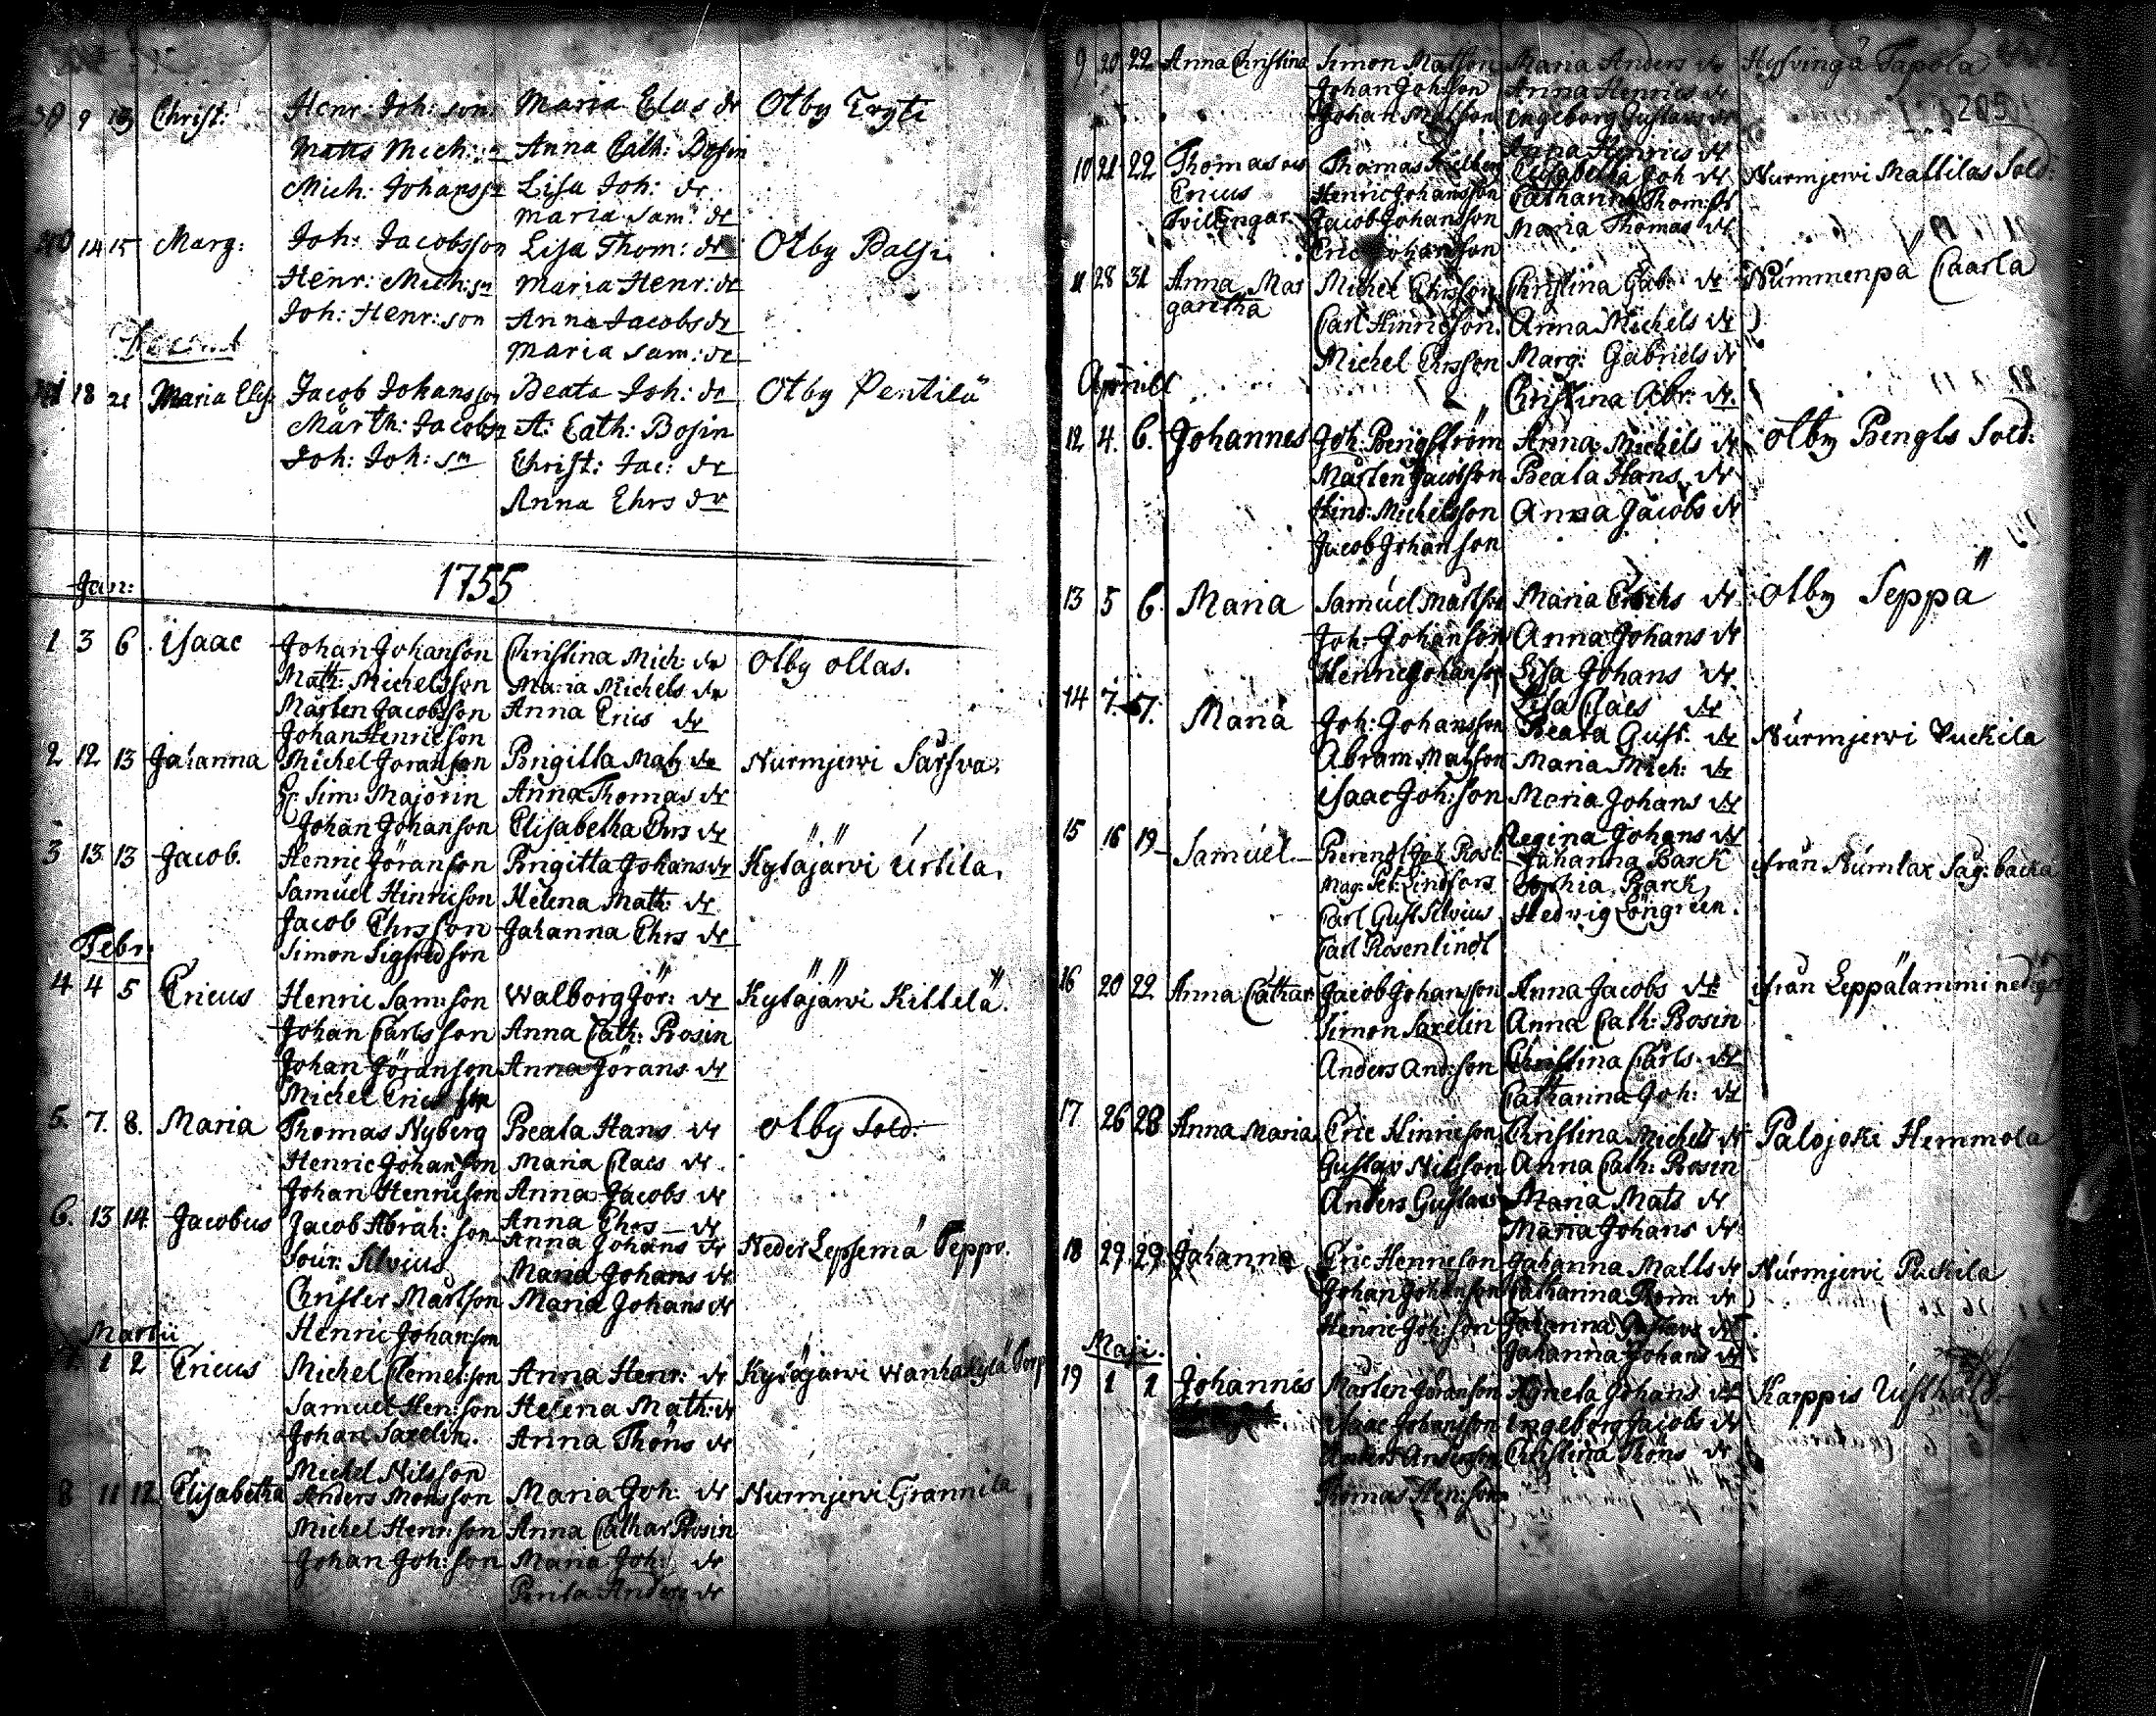 39 9 13 Christ: Henr: Joh: son Maria Clas dr Otby Tryti
Matts Mich: sn Anna Cath: Bosin
Mich: Johanss Lisa Joh: dr
Maria Sam: dr
14 15 Marg: Joh: Jacobsson Lisa Thom: dr Otby
Henr: Mich: sn Maria Henr: dr
Joh: Henr: son Anna Jacobs dr
Maria Sam: dr
Decemb
18 21 Maria Elis: Jacob Johansson Beata Joh: dr Otby Pentilä
Märth: Jacobsn A: Cath: Bosin
Joh: Joh: sn Christ: Jac: dr
Anna Ehrs dr
Jan: 1755
1 3 6 Isaac Johan Johanson Christina Mich: dr Otby ollas.
Math: Michelsson Maria Michels dr
Mårten Jacobsson Anna Erics dr
Johan Henricson
2 12 13 Johanna Michel Joranson Brigitta Mats dr Nurmjervi
Sim: Majorin Anna Thomas dr
Johan Johanson Elisabetha Ehrs dr
3 13 13 Jacob. Henric Göranson Brigitta Johans dr Kytäjärvi Urtila.
Samuel Hinricson Helena Math: dr
Jacob Ehrsson Johanna Ehrs dr
Febr: Simon Sigfredson
4 4 5 Ericus Henric Sam: son Walborg Jör: dr Kytäjärvi Kittelä.
Johan Carlsson Anna Cath: Bosin
Johan Göranson Anna Görans dr
Michel Erics son
5. 7. 8. Maria Thomas Nyberg Beata Hans dr Otby Sold:
Henric Johanson Maria Claes dr
Johan Henricson Anna Jacobs dr
Anna Ehrs dr
6. 13 14. Jacobus Jacob Abrah: son Anna Johans dr Neder Lepsema Seppo.
Silvius Maria Johans dr
Christer Martson Maria Johans dr
Martii Henric Johanson
7. 1 2 Ericus Michel Clemet: son Anna Henr: dr Kytäjärvi Wanhakylä Torp
Samuel Hen: son Helena Math: dr
Johan Saxelin. Anna Thoms dr
Michel Nilsson
8 11 12 Elisabetha Anders Monsson Maria Joh: dr Nurmjervi Grannila
Michel Henr: son Anna Cathar Bosin
Johan Joh: son Maria Joh: dr
Anders dr
9 20 22 Anna Christina Simon Matson Maria Anders dr Hyfvingä Tapola
Johan Johsson Anna Henrics dr
205
Johan Matson Ingeborg Gustavs dr
Anna Henrics dr
10 21 22 Thomas Thomas Elisabetha Joh dr Nurmjervi Mattilas Sold:
Ericus Henric Johansson Catharina Thom: dr
Tvilingar. Jacob Johansson Maria Thomas dr
Eric Johansson
11 28 31 Anna Mar Michel Ehrsson Christina Gab: dr Nummenpä Caarla
garetha Carl Hinricson. Anna Michels dr
Michel Ehrsson Marg: Gabriels dr
Aprill Christina Abr: dr.
12 4. 6. Johannes Joh: Bengström Anna Michels dr Otby Bengts Sold:
Mårten Jacobsson Beata Hans dr
Hind: Michelsson Anna Jacobs dr
Jacob Johanson
13 5 6. Maria Samuel Martson Maria dr Otby Seppä
Joh: Johanson Anna Johans dr
Henric Johanson Lisa Johans dr.
Lisa Claes dr
14 7. 7. Maria Joh: Johansson Beata Gust: dr Nurmjervi Puckila
Abram Matson Maria Mich: dr
Isaac Joh: son Maria Johans dr
Regina Johans dr
15 16 19 Samuel Johanna Barck ifrån Numlax Såg: backa
Mag: Pet: Lindfors Sophia Barck
Carl Gust Silvius Hedvig Löngreen.
Carl Rosenlindt
16 20 22 Anna Cathar: Jacob Johansson Anna Jacobs dr ifrån Leppälammi
Simon Saxelin Anna Cath: Bosin
Anders And: son Christina Carls dr
Catharina Joh: dr
17 26 28 Anna Maria Eric Hinricson Christina Michels dr Palojoki Hemmola
Gustav Nilsson Anna Cath: Bosin
Anders Gustavs Maria Mats dr
Maria Johans dr
18 29. 29. Johanna Eric Henricson Johanna Matts dr Nurmjervi Puckila
Johan Johanson Catharina Thom: dr
Henric Joh: son Johanna Gustavs dr
Maji. Johanna Johans dr
19 1 1 Johannes Mårten Göranson Agneta Johans dr Karppis Rusthåld.
Isaac Johansson Ingeborg Jacobs dr
Anders Andersson Christina Thoms dr
Thomas Hen: son